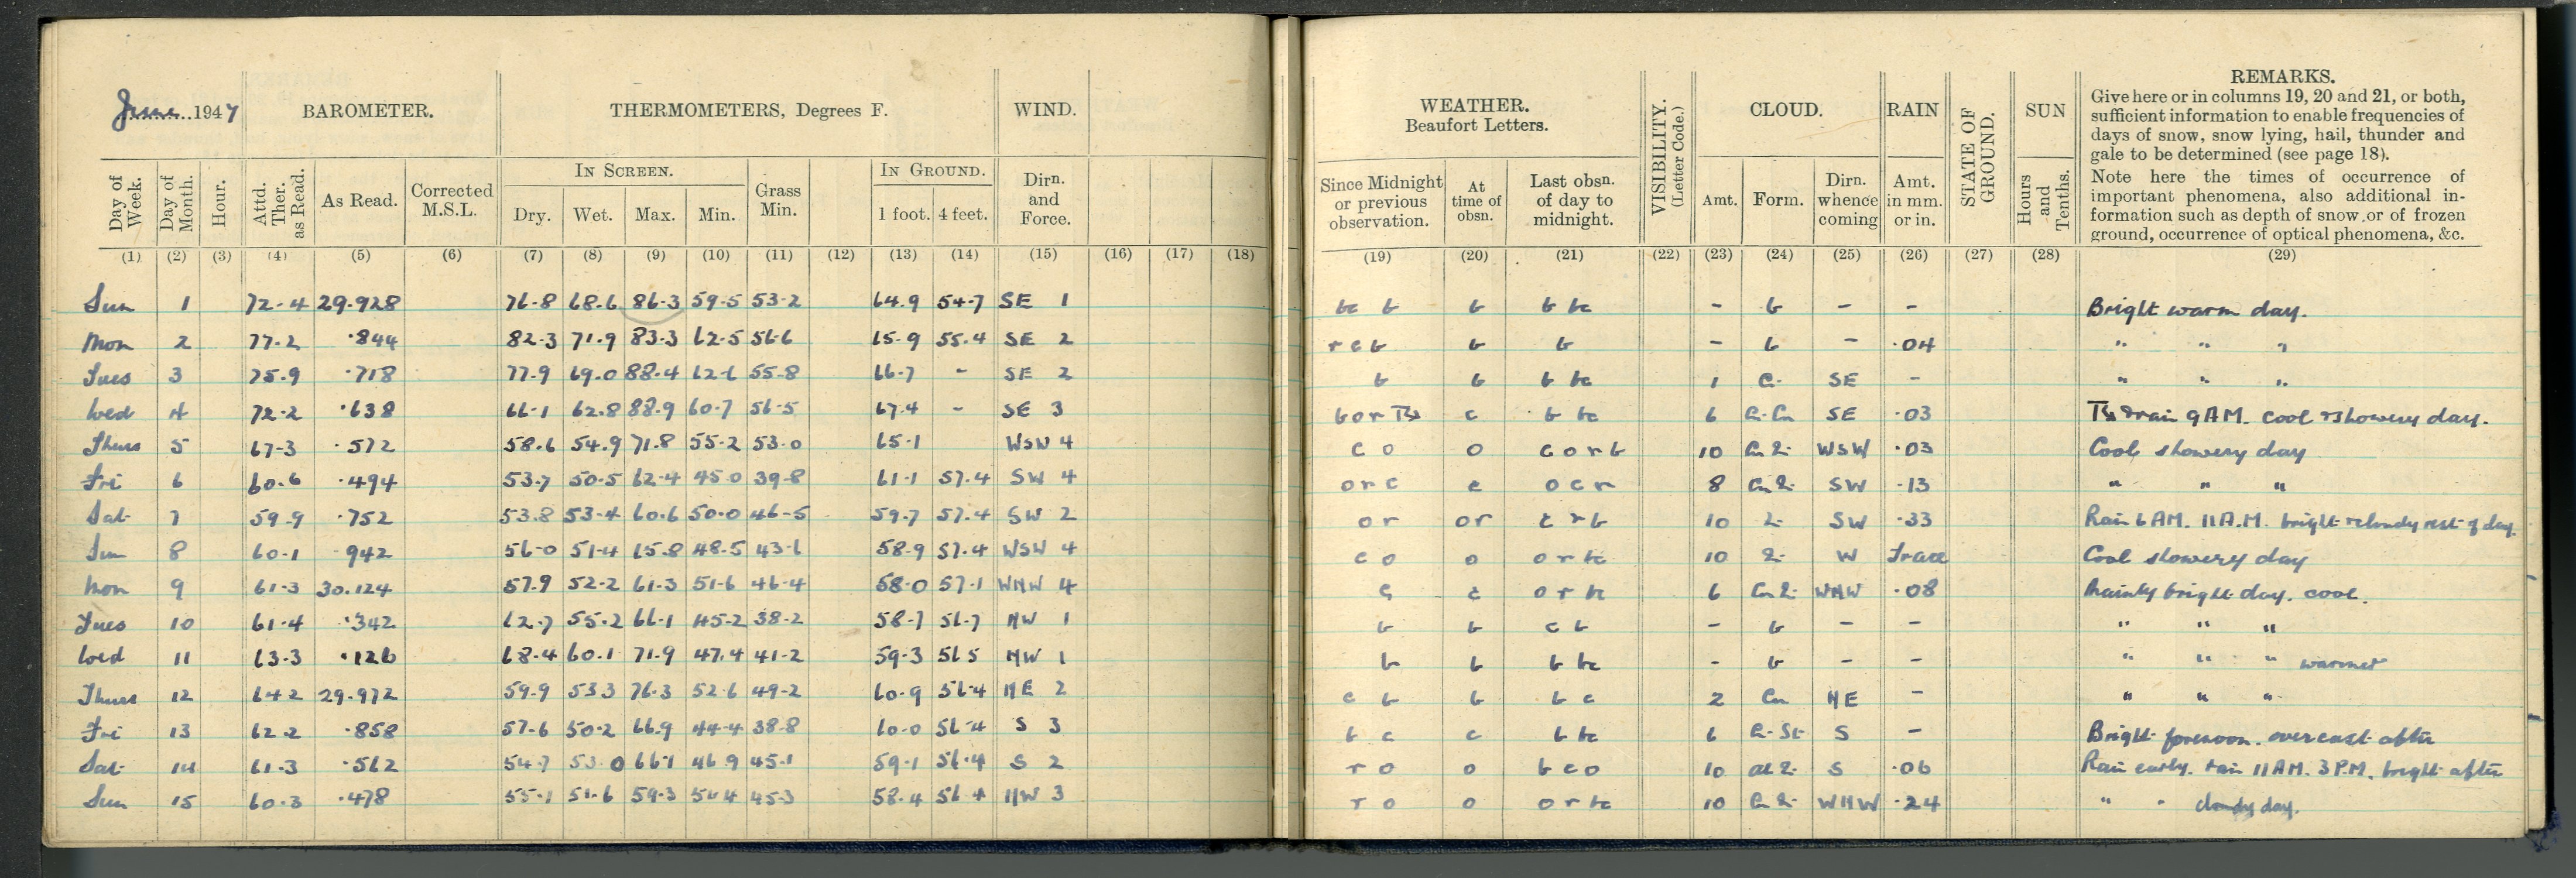 June 1947 BAROMETER. THERMOMETERS, Degrees F. WIND. WEATHER. Beaufort Letters. VISIBILITY. (Letter Code.) CLOUD. RAIN STATE OF GROUND. SUN REMARKS.
Give here or in columns 19, 20 and 21, or both,
sufficient information to enable frequencies of
days of snow, snow lying, hail, thunder and
gale to be determined (see page 18).
Note here the times of occurrence of
important phenomena, also additional in-
formation such as depth of snow or of frozen
ground, occurrence of optical phenomena, &c.
IN SCREEN. IN GROUND.
Day of Week. Day of Month. Hour. Attd. Ther. as Read. As Read. Corrected M.S.L. Dry. Wet. Max. Min. Grass Min. 1 foot. 4 feet. Dirn. and Force. Since Midnight or previous observation. At time of obsn. Last obsn. of day to midnight. Amt. Form. Dirn. whence coming Amt. in mm. or in. Hours and Tenths.
(1) (2) (3) (4) (5) (6) (7) (8) (9) (10) (11) (12) (13) (14) (15) (16) (17) (18) (19) (20) (21) (22) (23) (24) (25) (26) (27) (28) (29)
Sun 1 72.4 29.928 76.8 68.6 86.3 59.5 53.2 64.9 54.7 SE 1 bc b b b bc - b - - Bright warm day.
Mon 2 77.2 .844 82.3 71.9 83.3 62.5 56.6 65.9 55.4 SE 2 r c b b b - b - .04 " " "
Tues 3 75.9 .718 77.9 69.0 88.4 62.6 55.8 66.7 - SE 2 b b b bc 1 SE - " " "
Wed 4 72.2 .638 66.1 62.8 88.9 60.7 56.5 67.4 - SE 3 c b bc 6 SE .03 rain 9 AM. cool showery day.
Thurs 5 67.3 .572 58.6 54.9 71.8 55.2 53.0 65.1 WSW 4 c o o c o r b 10 WSW .03 Cool showery day
Fri 6 60.6 .494 53.7 50.5 62.4 45.0 39.8 61.1 57.4 SW 4 o r c c o c r 8 SW .13 " " "
Sat 7 59.9 .752 53.8 53.4 60.6 50.0 46.5 59.7 57.4 SW 2 o r o r c r b 10 SW .33 Rain 6 AM. 11 A.M. bright & cloudy rest of day.
Sun 8 60.1 .942 56.0 51.4 65.8 48.5 43.6 58.9 57.4 WSW 4 c o o o r bc 10 W Trace Cool showery day
Mon 9 61.3 30.124 57.9 52.2 61.3 51.6 46.4 58.0 57.1 WNW 4 c c o r bc 6 WNW .08 Mainly bright day. cool.
Tues 10 61.4 .342 62.7 55.2 66.1 45.2 38.2 58.7 56.7 NW 1 b b c b - b - - " " "
Wed 11 63.3 .126 68.4 60.1 71.9 47.4 41.2 59.3 56.5 NW 1 b b b bc - b - - " " " warmer
Thurs 12 64.2 29.972 59.9 53.3 76.3 52.6 49.2 60.9 56.4 NE 2 c b b b c 2 Cu NE - " " "
Fri 13 62.2 .858 57.6 50.2 66.9 44.4 38.8 60.0 56.4 S 3 b c c b bc 6 S - Bright forenoon. overcast after
Sat 14 61.3 .562 54.7 53.0 66.1 46.9 45.1 59.1 56.4 S 2 r o o b c o 10 S .06 Rain early. rain 11 AM. 3 P.M. bright after
Sun 15 60.3 .478 55.1 51.6 59.3 50.4 45.3 58.4 56.4 NW 3 r o o o r bc 10 WNW .24 " " cloudy day.